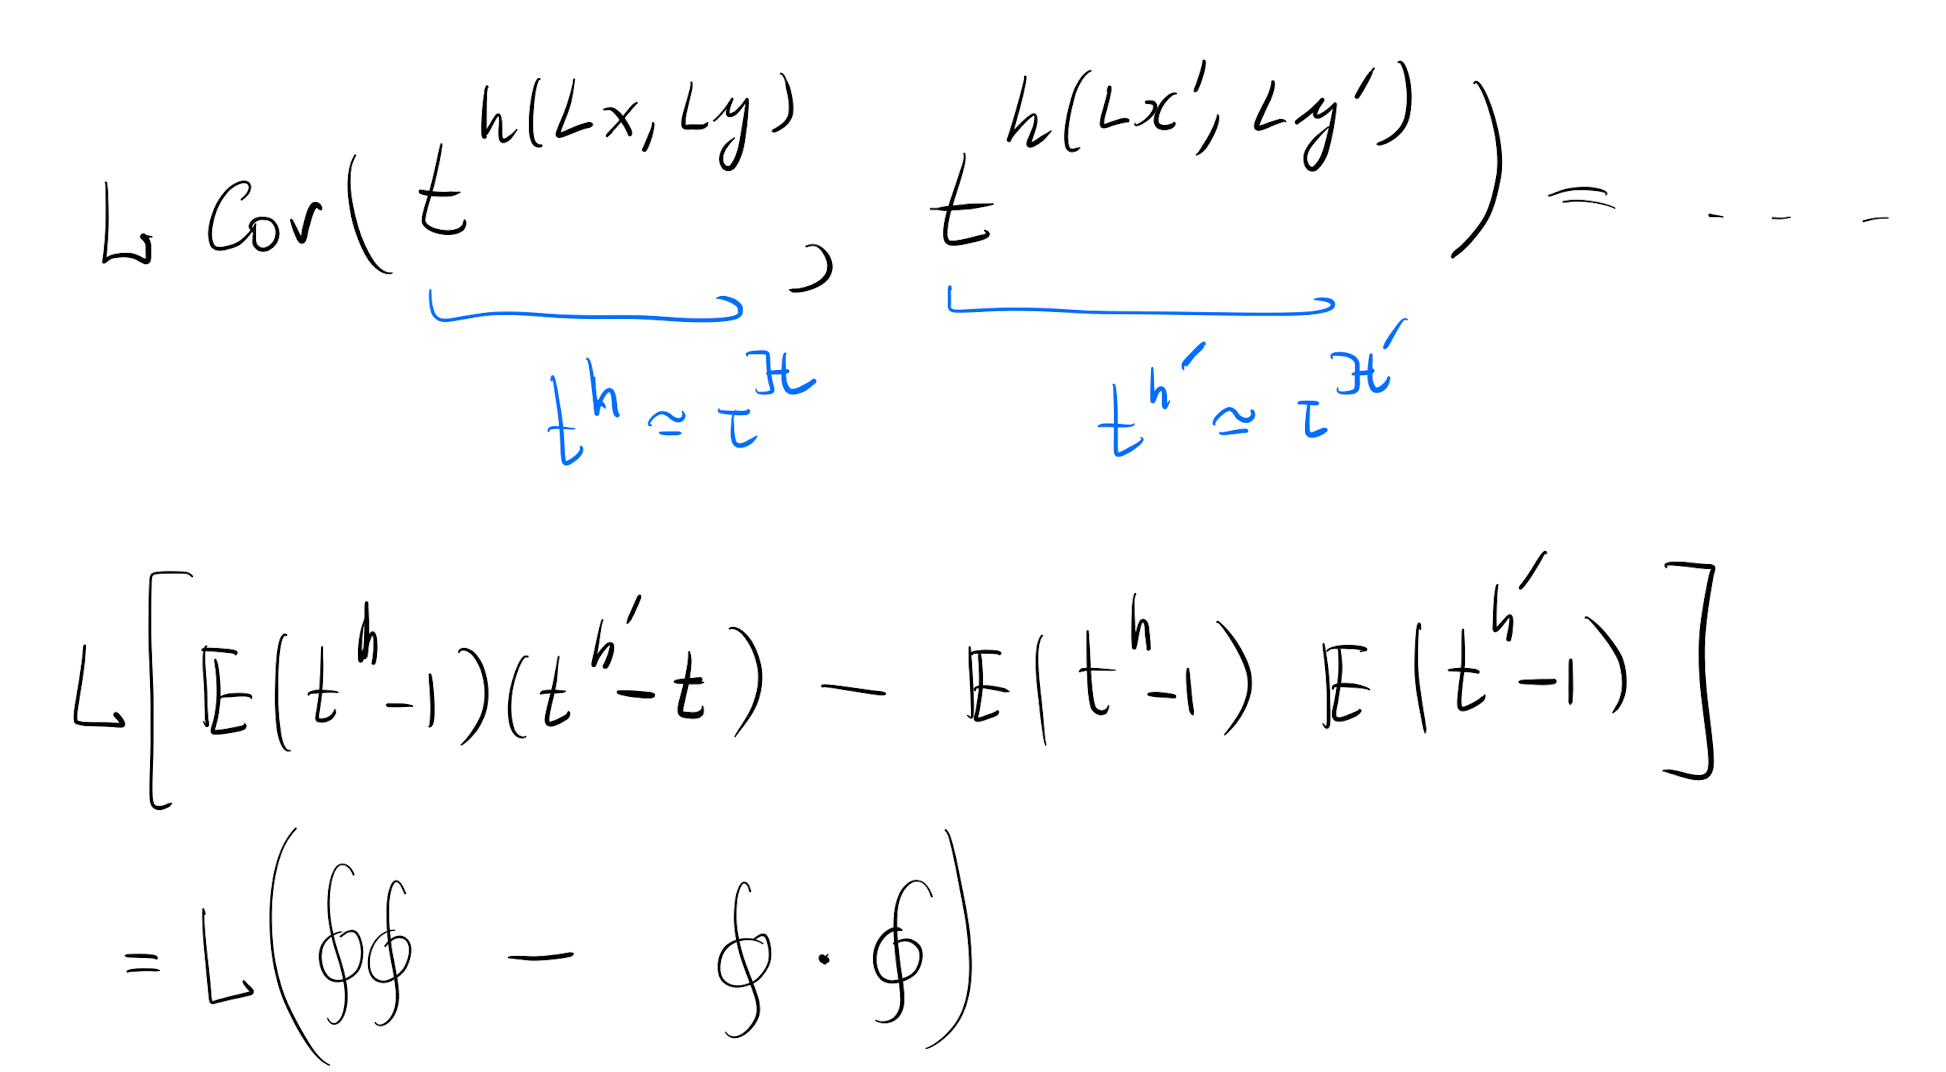 L Cov( t^{h(Lx, Ly)} , t^{h(Lx′, Ly′)} ) = - - -
t^h ≃ τ^ℋ t^{h′} ≃ τ^{ℋ′}
L[ 𝔼(t^h -1)(t^{h′} - t) - 𝔼(t^h -1) 𝔼(t^{h′} -1) ]
= L( ∮∮ - ∮ · ∮ )